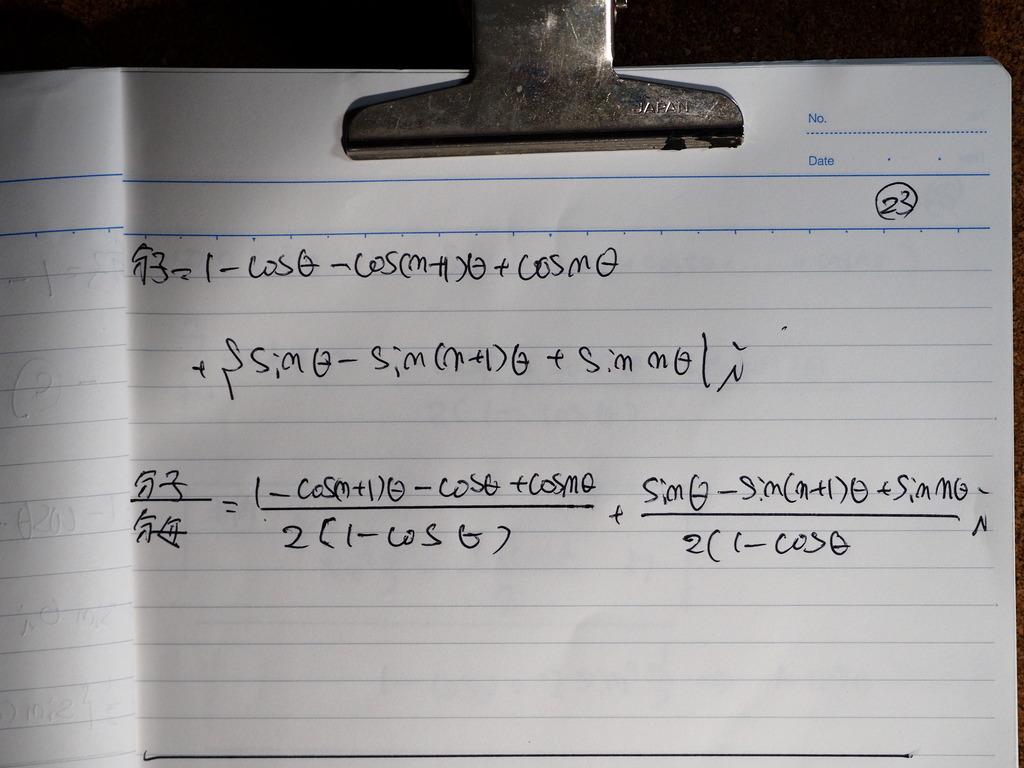 JAPAN
No.
Date
㉓
分子=1-cosθ-cos(n+1)θ+cosnθ
+{sinθ-sin(n+1)θ+sin nθ}i
分子/分母 = (1-cos(n+1)θ-cosθ+cosnθ)/2(1-cosθ) + (sinθ-sin(n+1)θ+sin nθ)/2(1-cosθ i